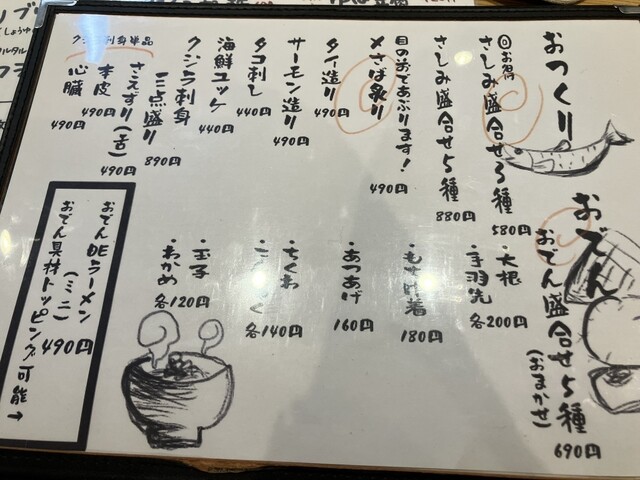 おつくり
回お得
さしみ盛合せ3種
580円
さしみ盛合せ5種
880円
目の前であぶります!
〆さば炙り
490円
タイ造り
490円
サーモン造り
490円
タコ刺し
440円
海鮮ユッケ
440円
クジラ刺身
三点盛り
890円
クジラ刺身単品
さえずり(舌)
490円
本皮
490円
心臓
490円
おでん
おでん盛合せ5種
(おまかせ)
690円
・大根
・手羽先
各200円
180円
・あつあげ
160円
・ちくわ
各140円
・玉子
・わかめ
各120円
おでんDEラーメン
(ミニ)
490円
おでん具材トッピング可能→